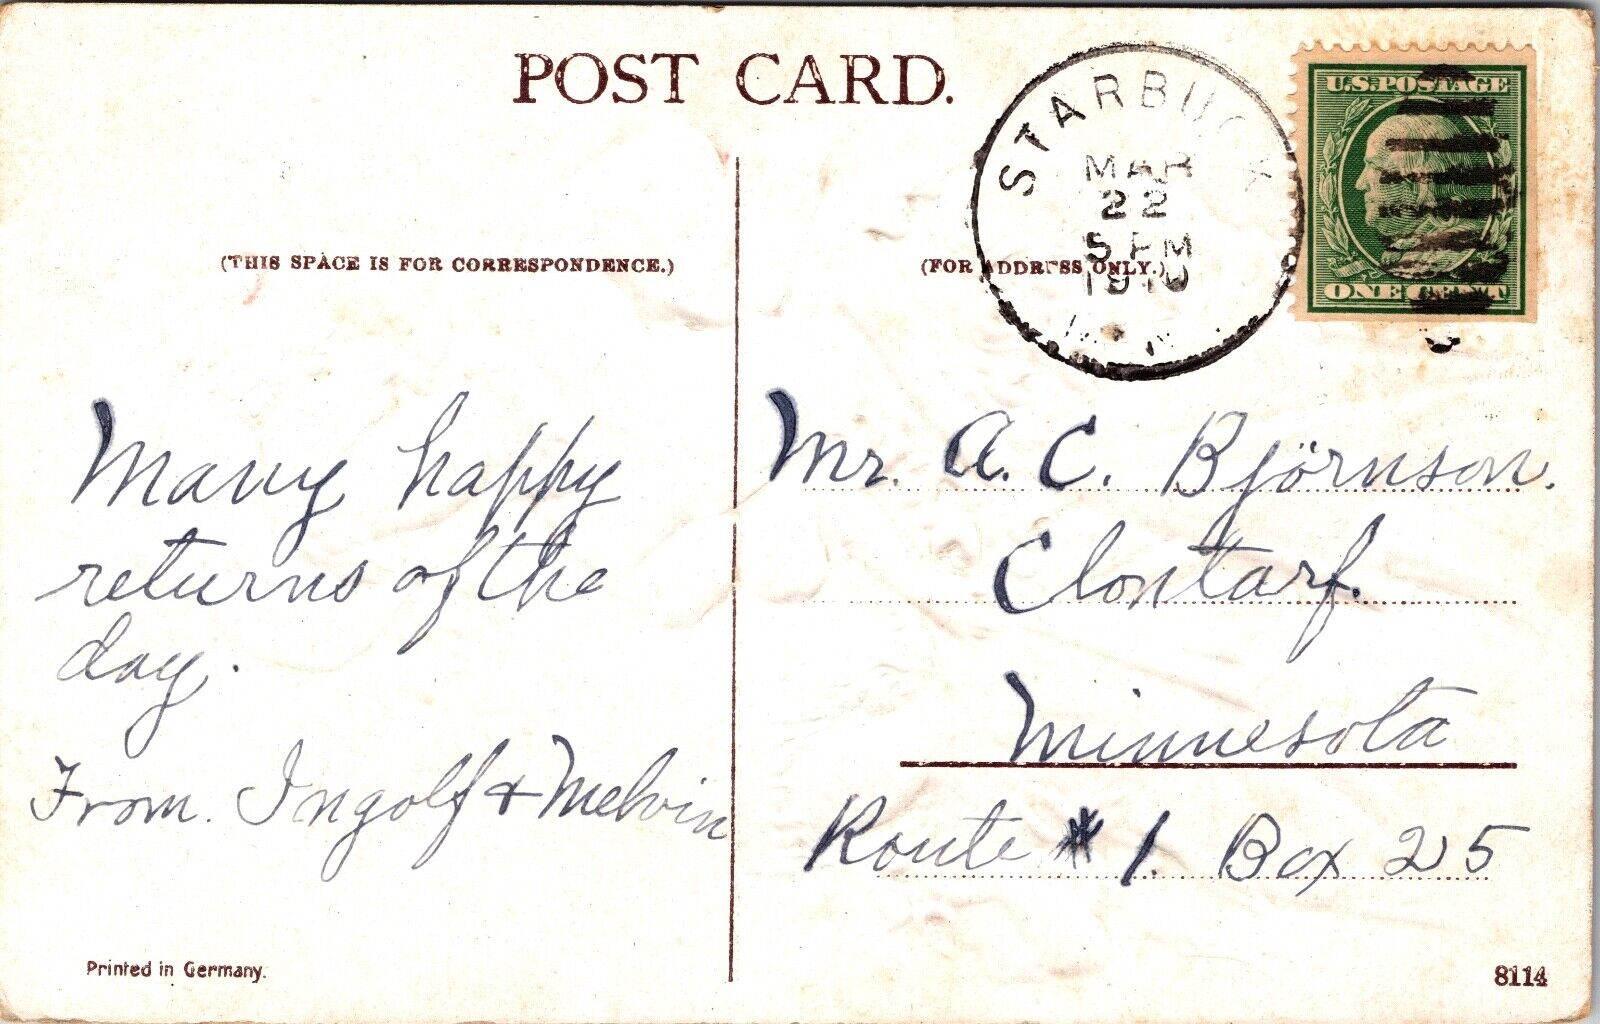 POST CARD.
STARBUCK
MAR
22
5 PM
1910
MINN.
U.S. POSTAGE
ONE CENT
(THIS SPACE IS FOR CORRESPONDENCE.)
(FOR ADDRESS ONLY.)
Many happy
returns of the
day.
From. Ingolf & Melvin
Mr. A. C. Björnson.
Clontarf.
Minnesota
Route # 1. Box 25
Printed in Germany.
8114